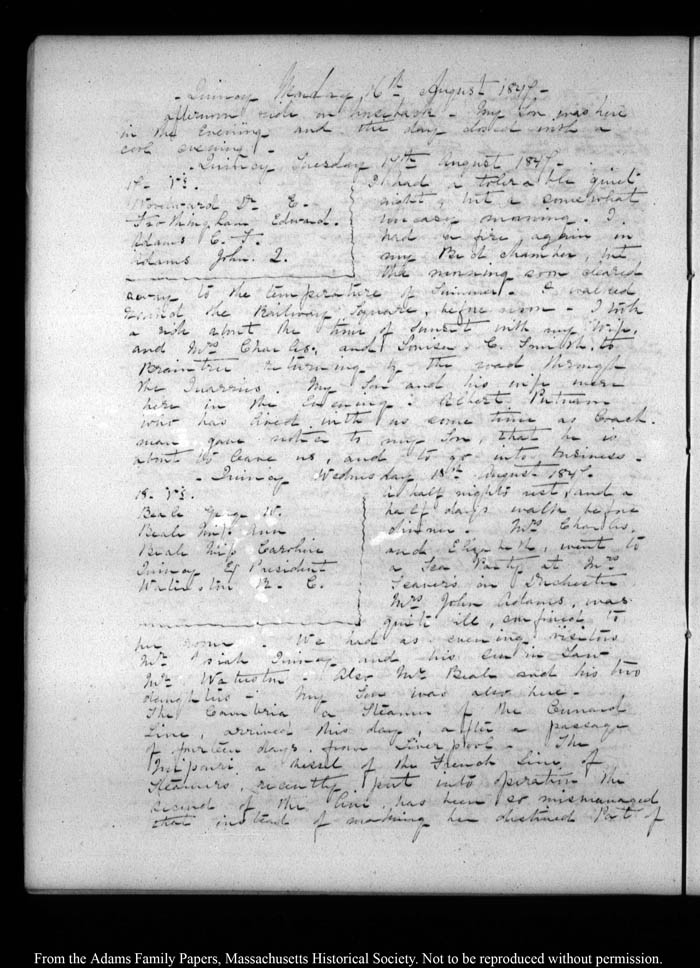 - Quincy Monday 16th August 1847 -
afternoon ride on horseback - My Son was here
in the Evening and the day closed with a
cool evening. -
- Quincy Tuesday 17th August 1847. -
17. V:3.
Woodward Dr. E.
Frothingham Edward.
Adams C. F.
Adams John. Q.
I had a tolerable quiet
night, but a somewhat
uneasy morning. I
had a fire again in
my Bed chamber, but
the morning soon cleared
away to the temperature of Summer. I walked
round the Railway Square, before noon - I took
a ride about the time of Sunset with my Wife,
and Mrs. Charles, and Louisa C. Smith, to
Braintree returning by the road through
the Quarries. My Son and his wife were
here in the Evening. Albert Putnam
who has lived with us some time as Coach-
man gave notice to my Son, that he is
about to leave us, and to go into business. -
- Quincy Wednesday 18th August 1847.
18. V:3.
Beale George W.
Beale Miss Ann
Beale Miss Caroline
Quincy Ex President
Waterston R. C.
A half nights rest, and a
half days walk before
dinner. Mrs. Charles,
and Elizabeth, went to
a Tea Party at Mrs.
Seavers in Dorchester
Mrs. John Adams, was
quite ill, confined to
her room. We had as evening visitors
Mr. Josiah Quincy and his Son in Law
Mr. Waterston - Also Mr. Beale and his two
daughters - My Son was also here -
The Cambria a Steamer of the Cunard
Line, arrived this day, after a passage
of fourteen days from Liverpool - The
Missouri a vessel of the French Line of
Steamers, recently put into operation the
second of the line has been so mismanaged
that instead of making her destined Port of
From the Adams Family Papers, Massachusetts Historical Society. Not to be reproduced without permission.